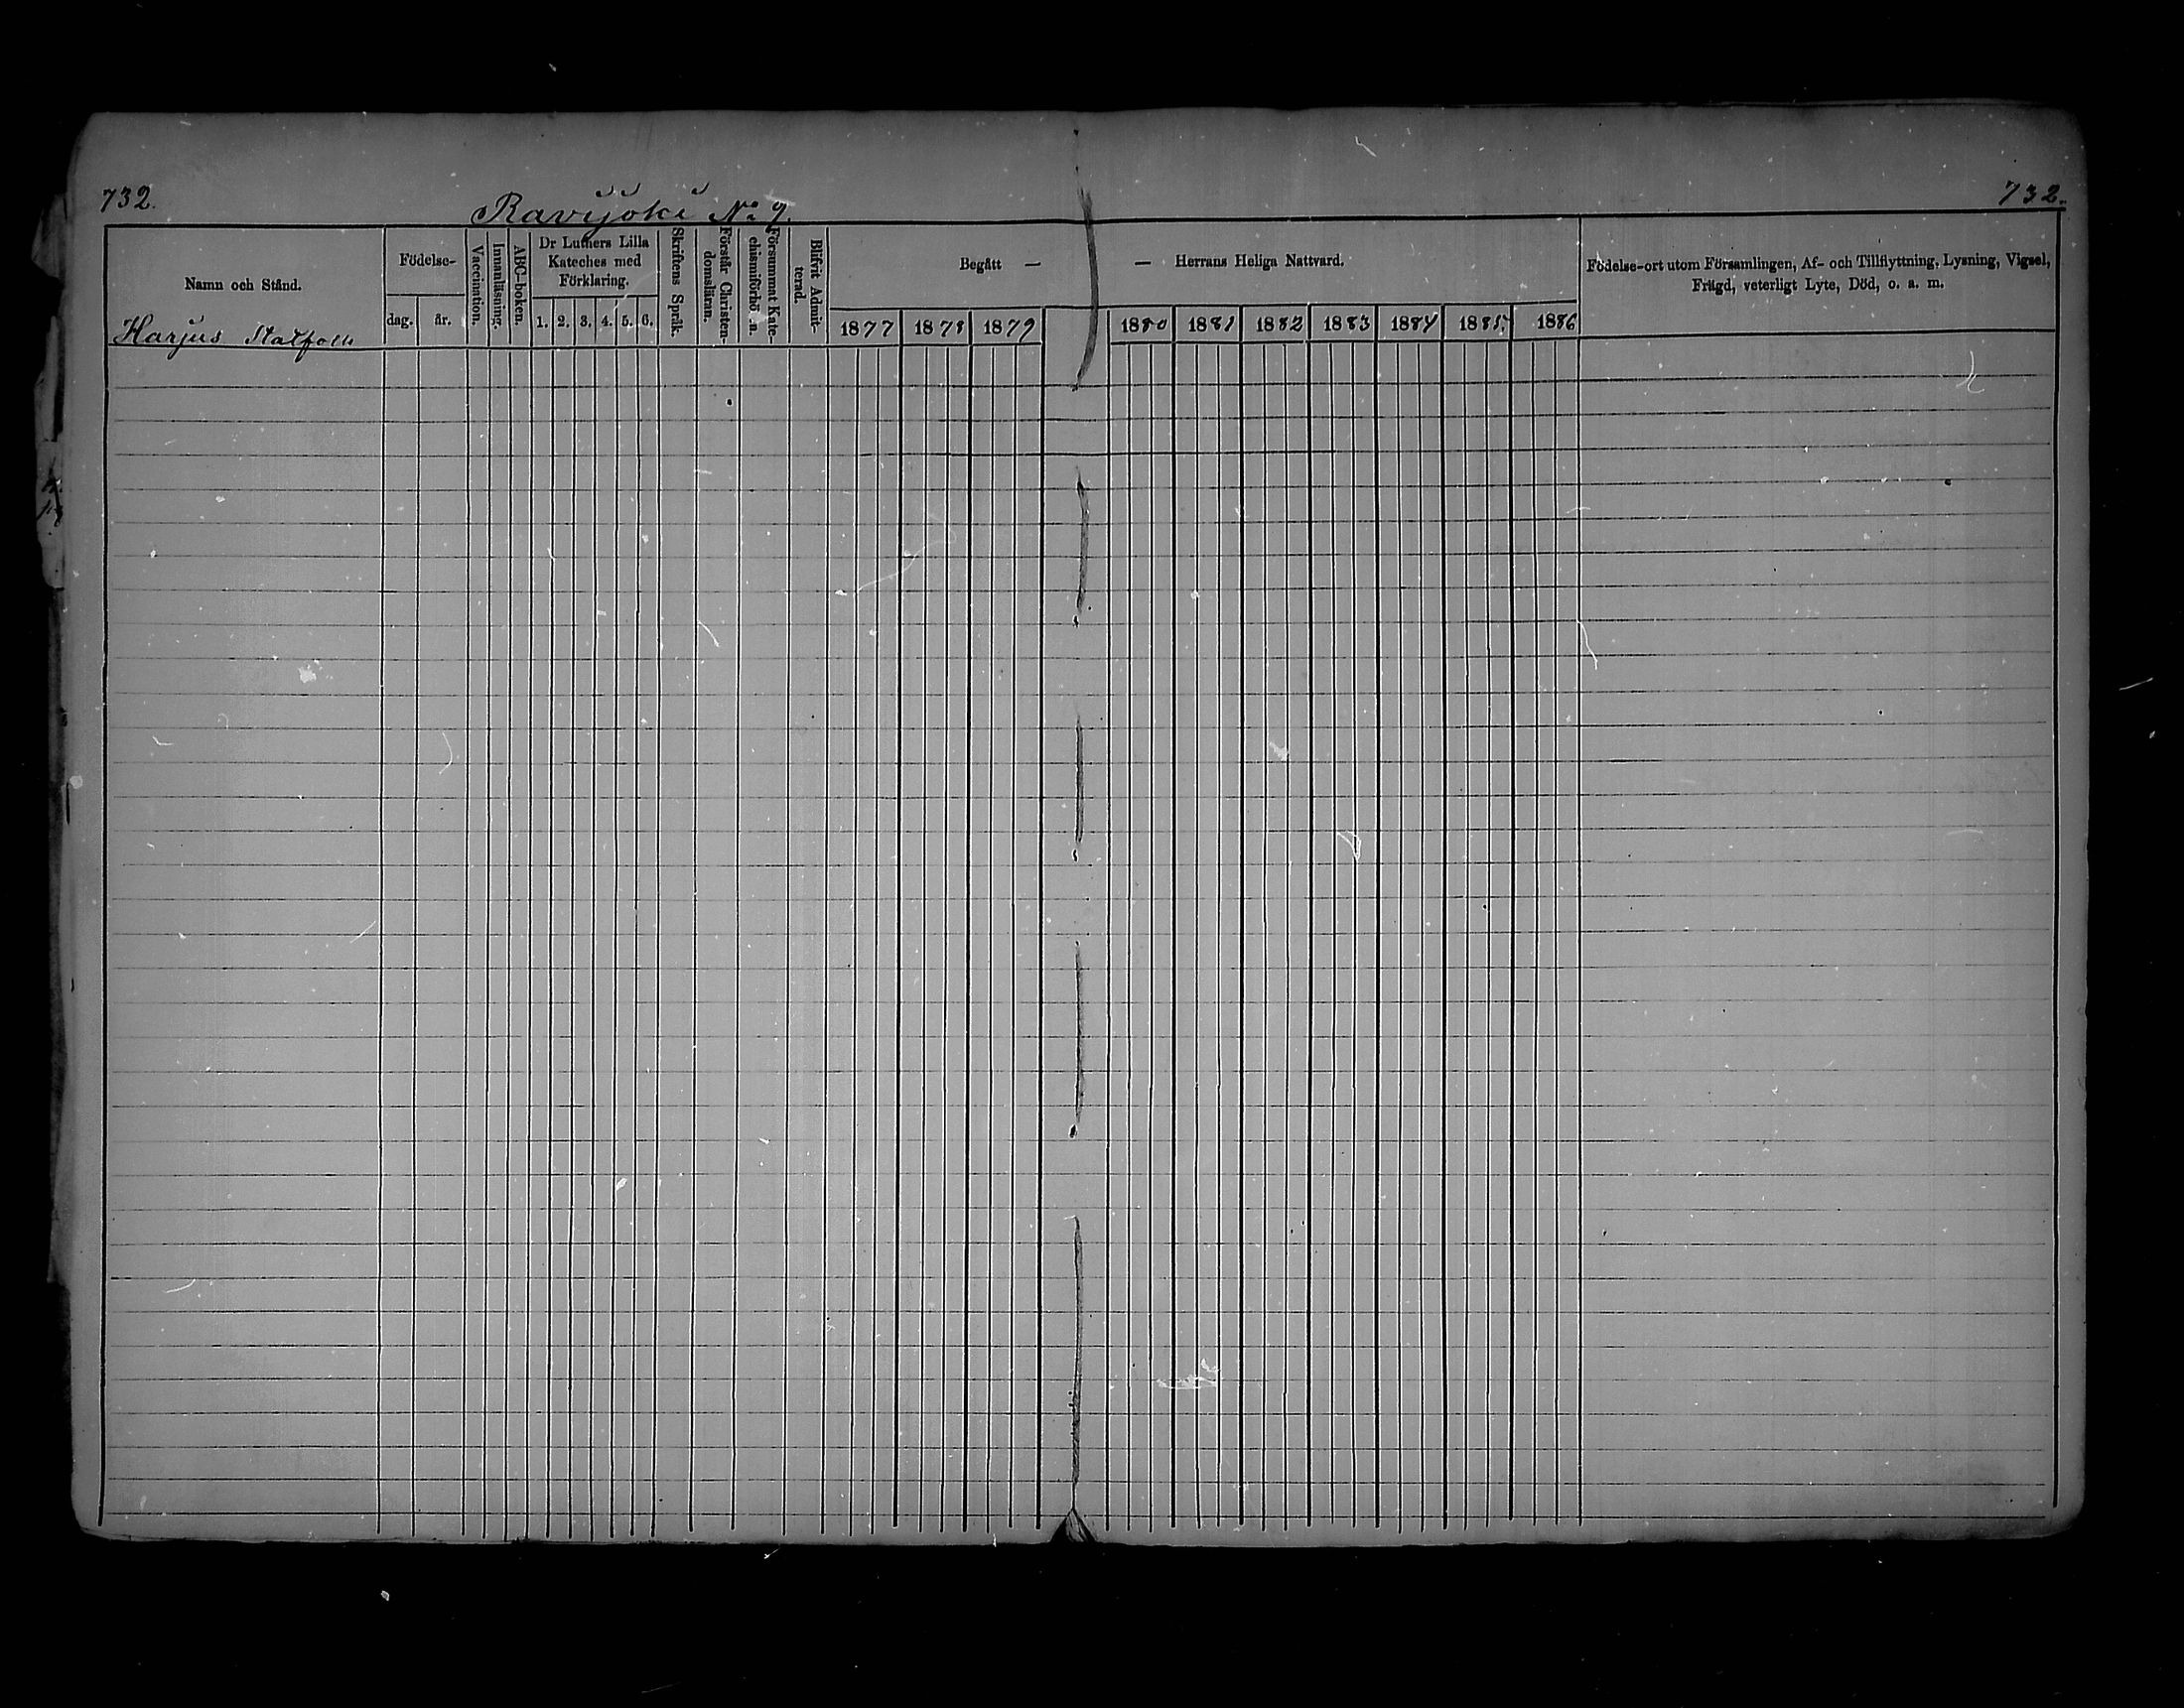 732.
Ravijoki No 9.
732.
Namn och Stånd.
Födelse-
dag.
år.
Vaccination.
Innanläsning.
ABC-boken.
Dr Luthers Lilla
Kateches med
Förklaring.
1. 2. 3. 4. 5. 6.
Skriftens Språk.
Förstår Christen-
domsläran.
Försummat Kate-
chismiförhö .n.
Blifvit Admit-
terad.
Begått —
— Herrans Heliga Nattvard.
1877 1878 1879
1880 1881 1882 1883 1884 1885. 1886
Födelse-ort utom Församlingen, Af- och Tillflyttning, Lysning, Vigsel,
Frägd, veterligt Lyte, Död, o. a. m.
Harjus Statfolk